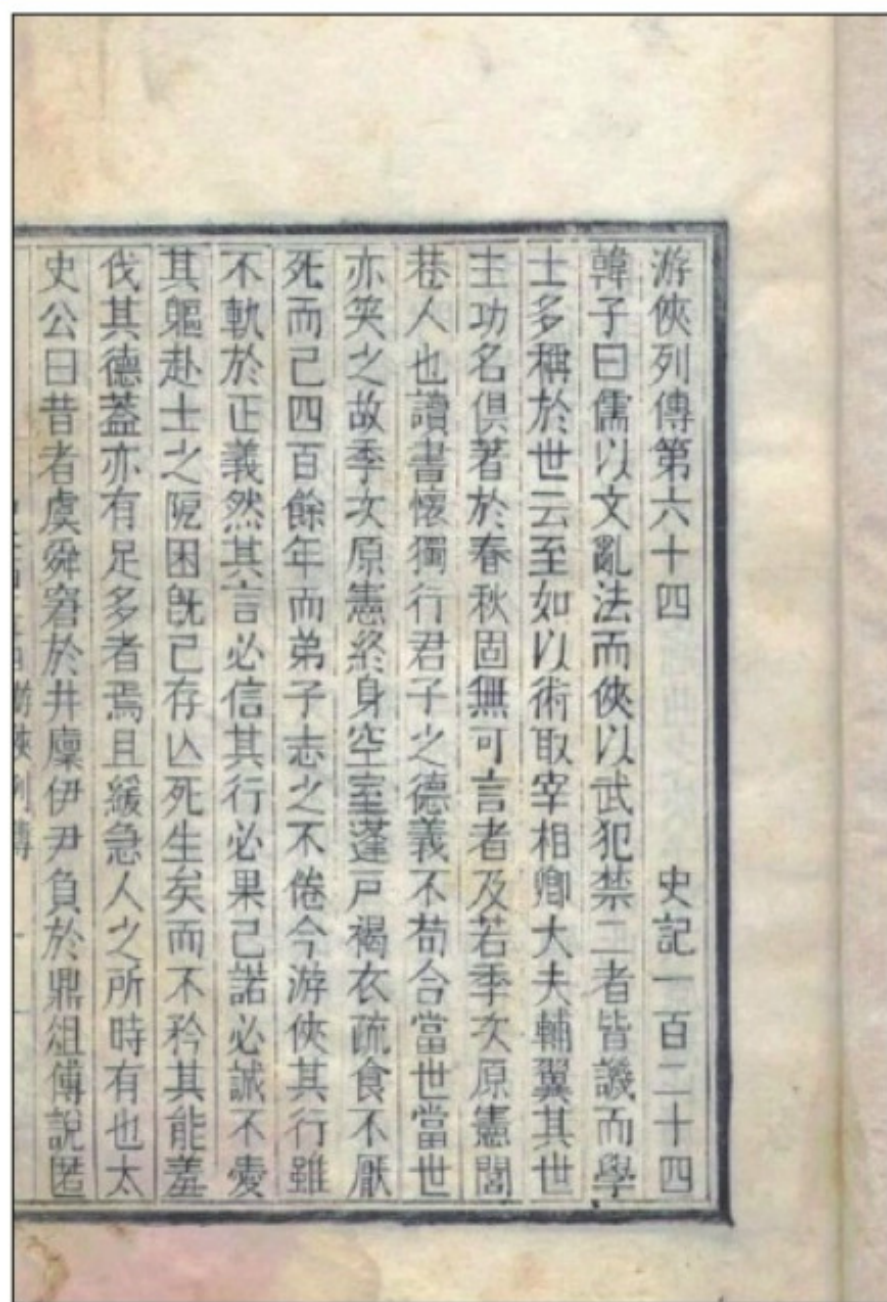 游俠列傳第六十四 史記一百二十四
韓子曰儒以文亂法而俠以武犯禁二者皆譏而學
士多稱於世云至如以術取宰相卿大夫輔翼其世
主功名俱著於春秋固無可言者及若季次原憲閭
巷人也讀書懷獨行君子之德義不苟合當世當世
亦笑之故季次原憲終身空室蓬戶褐衣疏食不厭
死而已四百餘年而弟子志之不倦今游俠其行雖
不軌於正義然其言必信其行必果已諾必誠不愛
其軀赴士之阨困既已存亾死生矣而不矜其能羞
伐其德蓋亦有足多者焉且緩急人之所時有也太
史公曰昔者虞舜窘於井廩伊尹負於鼎俎傅說匿
游俠列傳